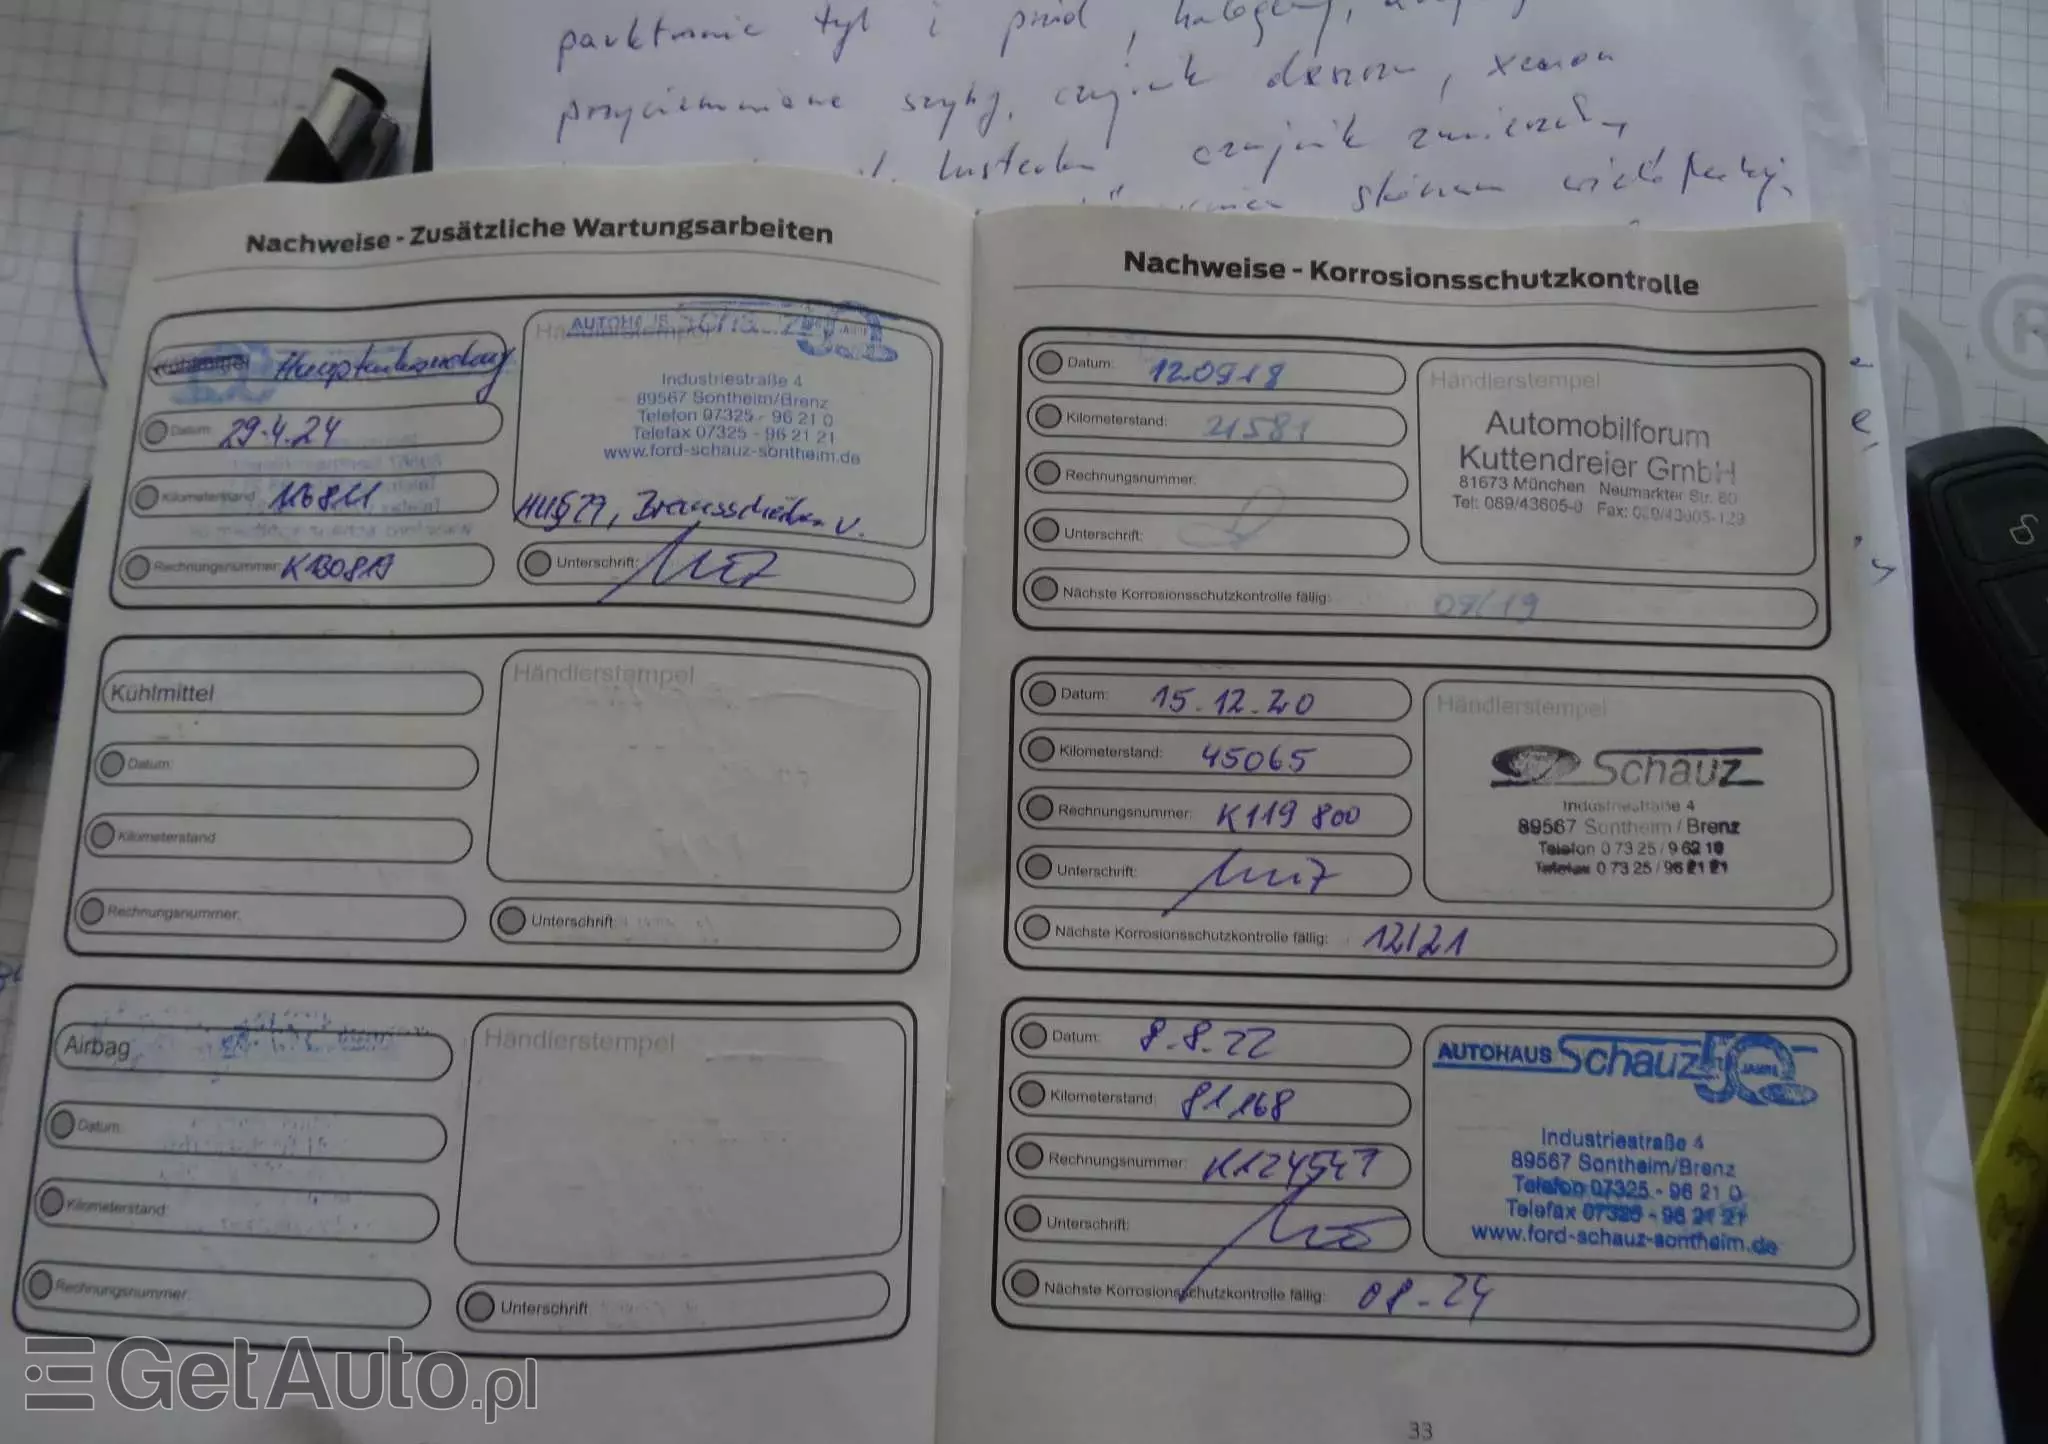 parktronic tył i przód,
przyciemniane szyby, czujnik deszczu, xenon
lusterka, czujnik zmierzchu,
skórzana
Nachweise - Zusätzliche Wartungsarbeiten
Kühlmittel Hauptuntersuchung
Datum: 29.4.24
Kilometerstand
Rechnungsnummer: K130819
Händlerstempel
AUTOHAUS
Industriestraße 4
89567 Sontheim/Brenz
Telefon 07325 - 96 21 0
Telefax 07325 - 96 21 21
www.ford-schauz-sontheim.de
Bremsscheiben v.
Unterschrift:
Kühlmittel
Datum:
Kilometerstand
Rechnungsnummer:
Händlerstempel
Unterschrift:
Airbag
Datum:
Kilometerstand:
Rechnungsnummer:
Händlerstempel
Unterschrift
Nachweise - Korrosionsschutzkontrolle
Datum: 12.09.18
Kilometerstand: 21581
Rechnungsnummer:
Unterschrift:
Nächste Korrosionsschutzkontrolle fällig: 09/19
Händlerstempel
Automobilforum
Kuttendreier GmbH
81673 München Neumarkter Str. 80
Tel: 089/43605-0 Fax: 089/43605-129
Datum: 15.12.20
Kilometerstand: 45065
Rechnungsnummer: K119 800
Unterschrift:
Nächste Korrosionsschutzkontrolle fällig: 12/21
Händlerstempel
Schauz
Industriestraße 4
89567 Sontheim / Brenz
Telefon 0 73 25 / 9 62 10
Telefax 0 73 25 / 96 21 21
Datum: 8.8.22
Kilometerstand: 81168
Rechnungsnummer: K124547
Unterschrift:
Nächste Korrosionsschutzkontrolle fällig: 08-24
AUTOHAUS Schauz 50 JAHRE
Industriestraße 4
89567 Sontheim/Brenz
Telefon 07325 - 96 21 0
Telefax 07325 - 96 21 21
www.ford-schauz-sontheim.de
33
GetAuto.pl